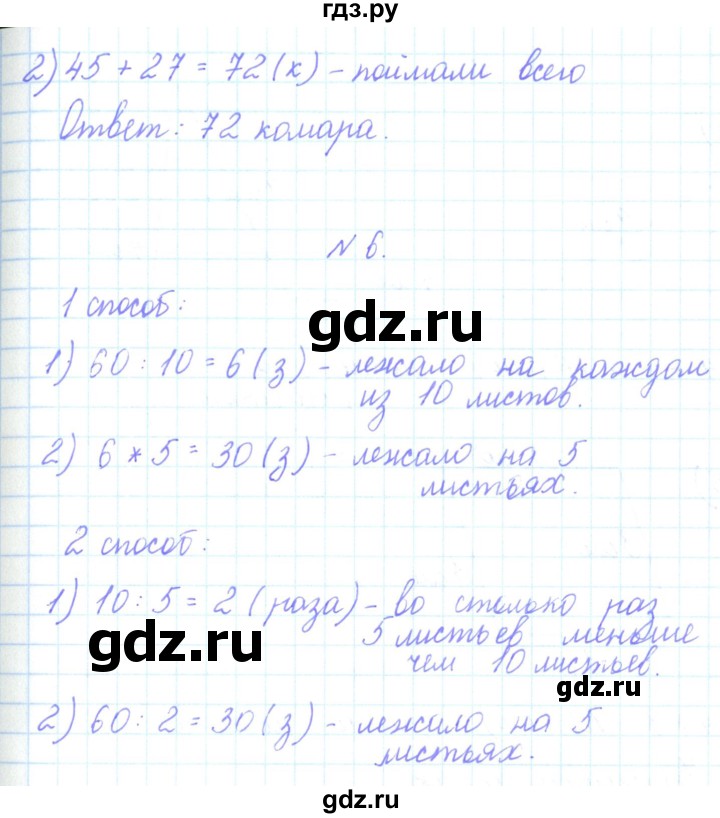 гдз.ру
2) 45 + 27 = 72 (к) - поймали всего
Ответ: 72 комара.
N 6.
1 способ:
gdz.ru
1) 60 : 10 = 6 (з) - лежало на каждом
из 10 листов.
2) 6 * 5 = 30 (з) - лежало на 5
листьях.
2 способ:
1) 10 : 5 = 2 (раза) - во столько раз
5 листьев меньше
gdz.ru
чем 10 листьев.
gdz.ru
2) 60 : 2 = 30 (з) - лежало на 5
листьях.
gdz.ru